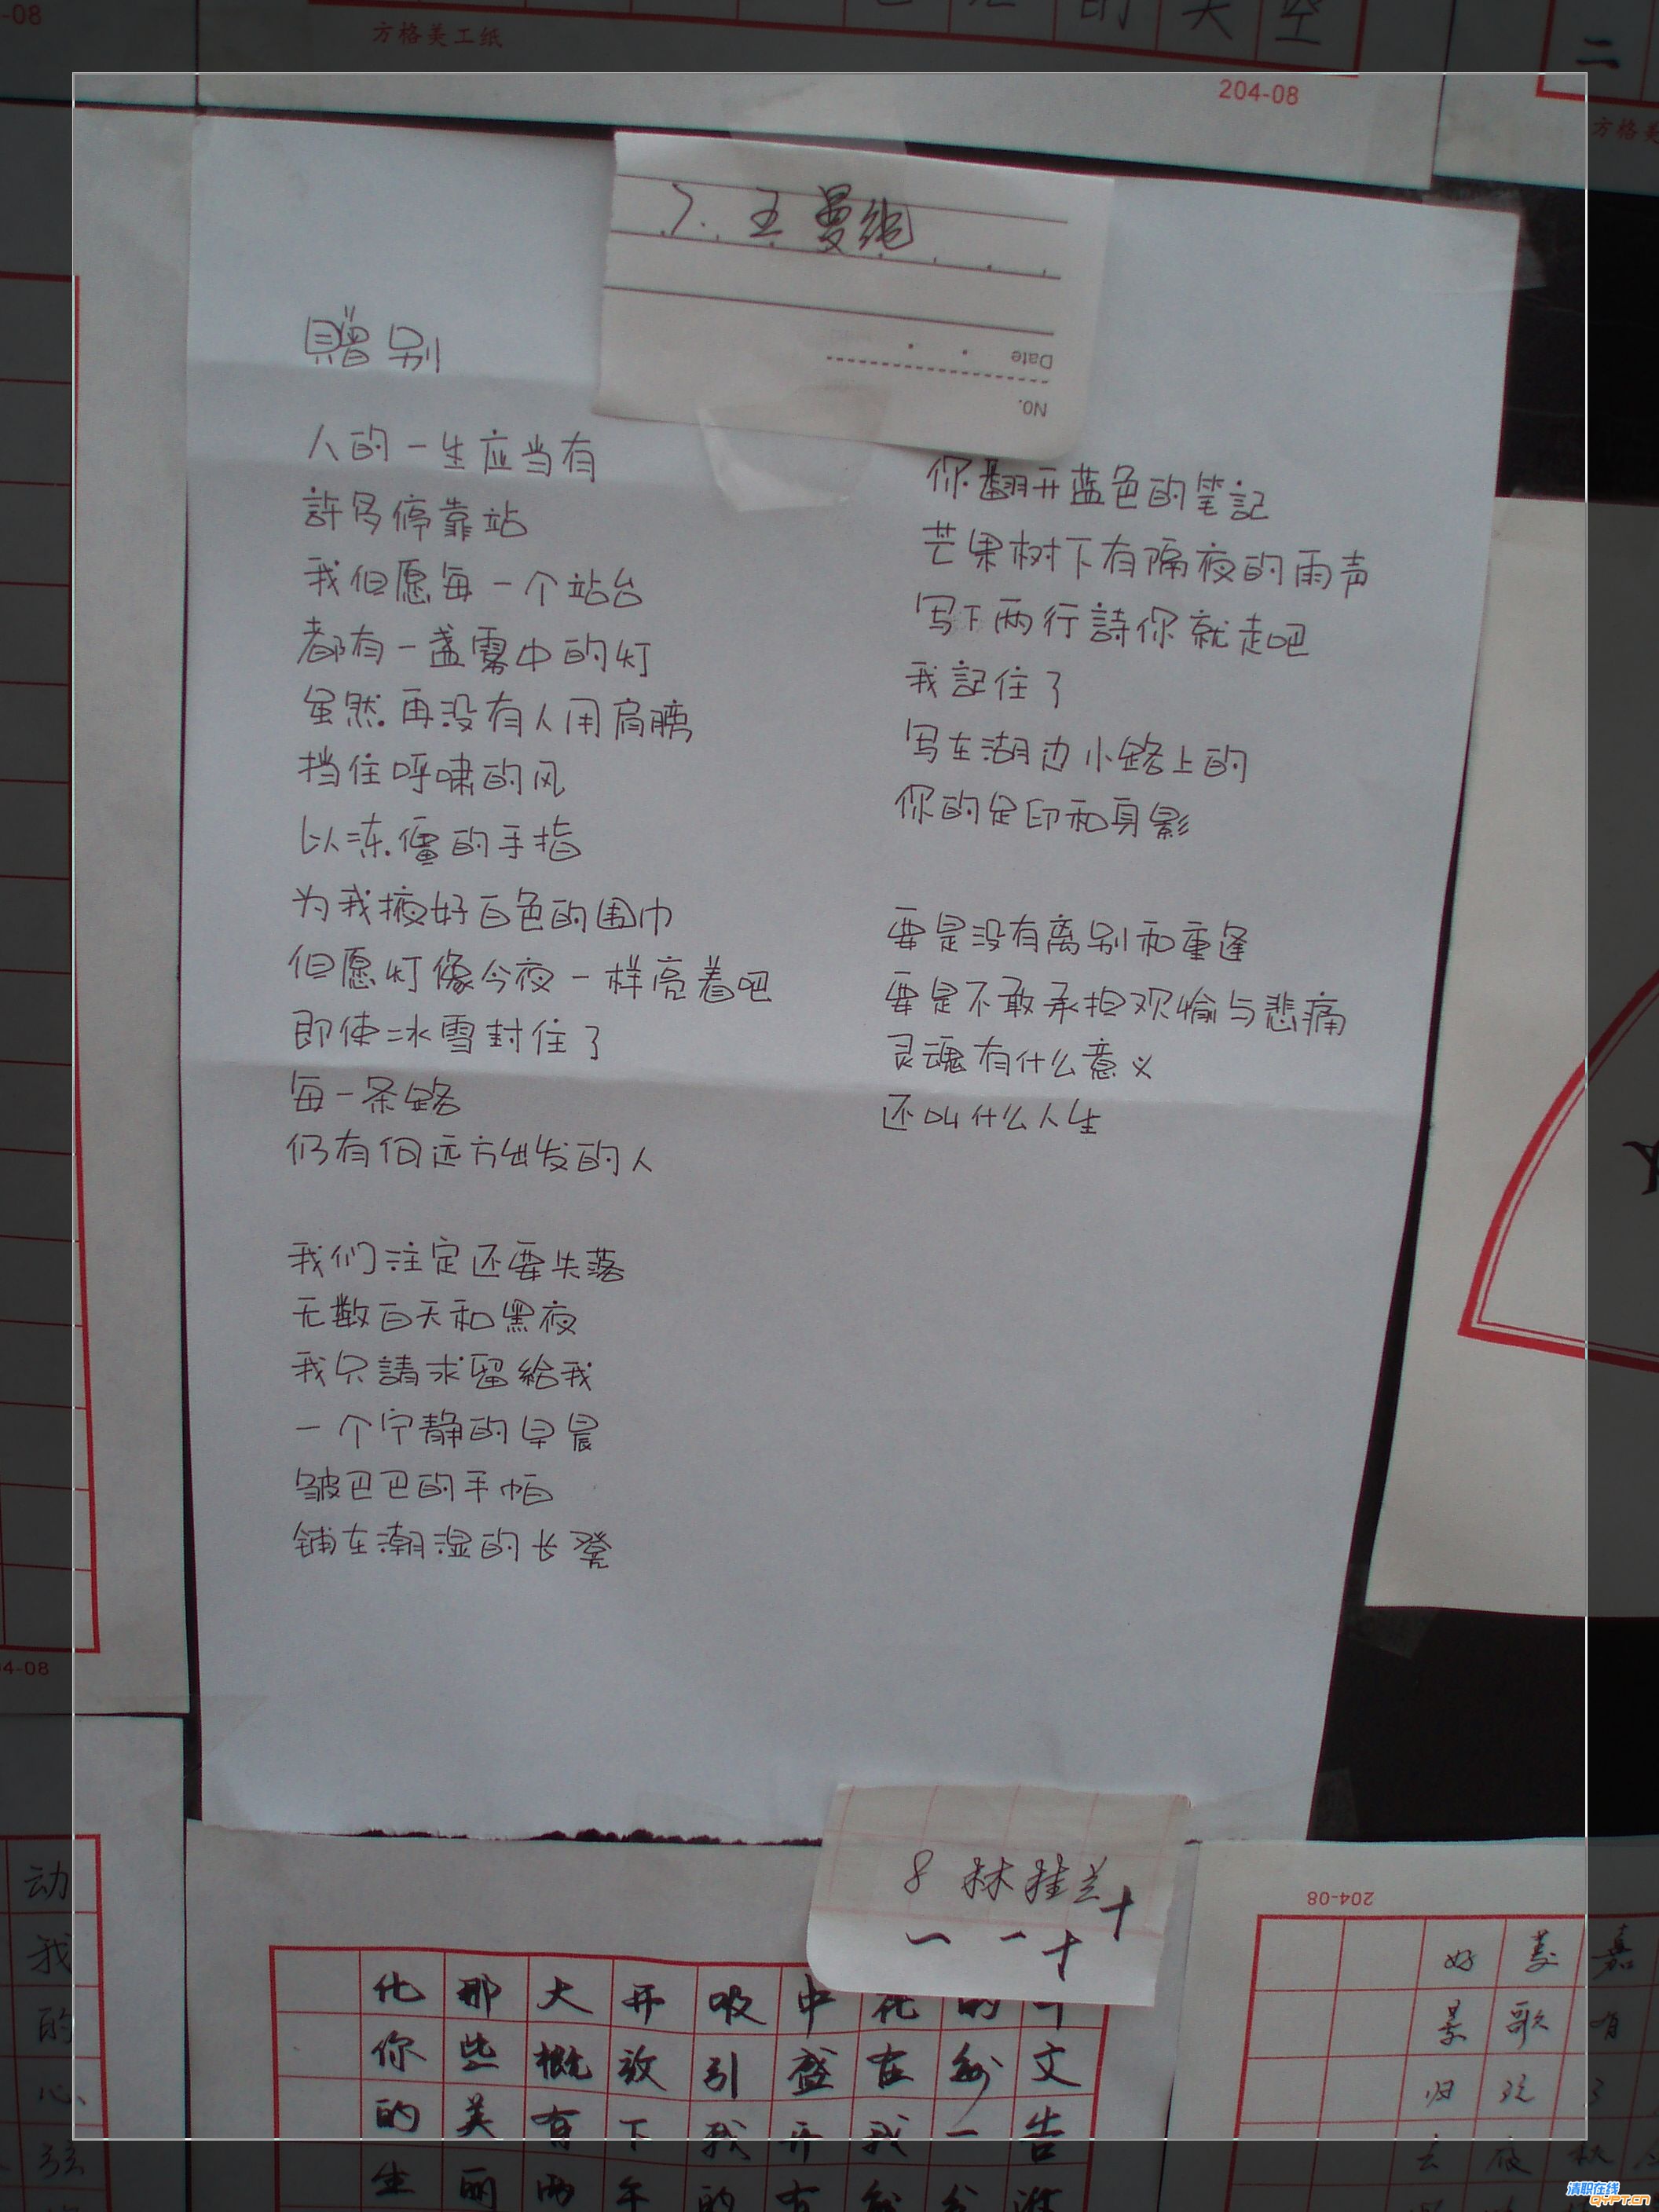 方格美工纸
的天空
二
204-08
方格美
7. 王曼纯
Date
NO.
贈别
人的一生应当有
許多停靠站
我但愿每一个站台
都有一盏雾中的灯
虽然再没有人用肩膀
挡住呼啸的风
以冻僵的手指
为我掖好白色的围巾
但愿灯像今夜一样亮着吧
即使冰雪封住了
每一条路
仍有向远方出发的人
我们注定还要失落
无数白天和黑夜
我只請求留給我
一个宁静的早晨
皱巴巴的手帕
铺在潮湿的长凳
你翻开蓝色的笔記
芒果树下有隔夜的雨声
写下两行詩你就走吧
我記住了
写在湖边小路上的
你的足印和身影
要是没有离别和重逢
要是不敢承担欢愉与悲痛
灵魂有什么意义
还叫什么人生
8 林桂兰
204-08
化那大开吸中花的
你些概放引盛在 文
的美有下我开我一告
生丽两年的有
动
我
的
心
弦
嘉
歌有
归
清职在线
QYPT.CN